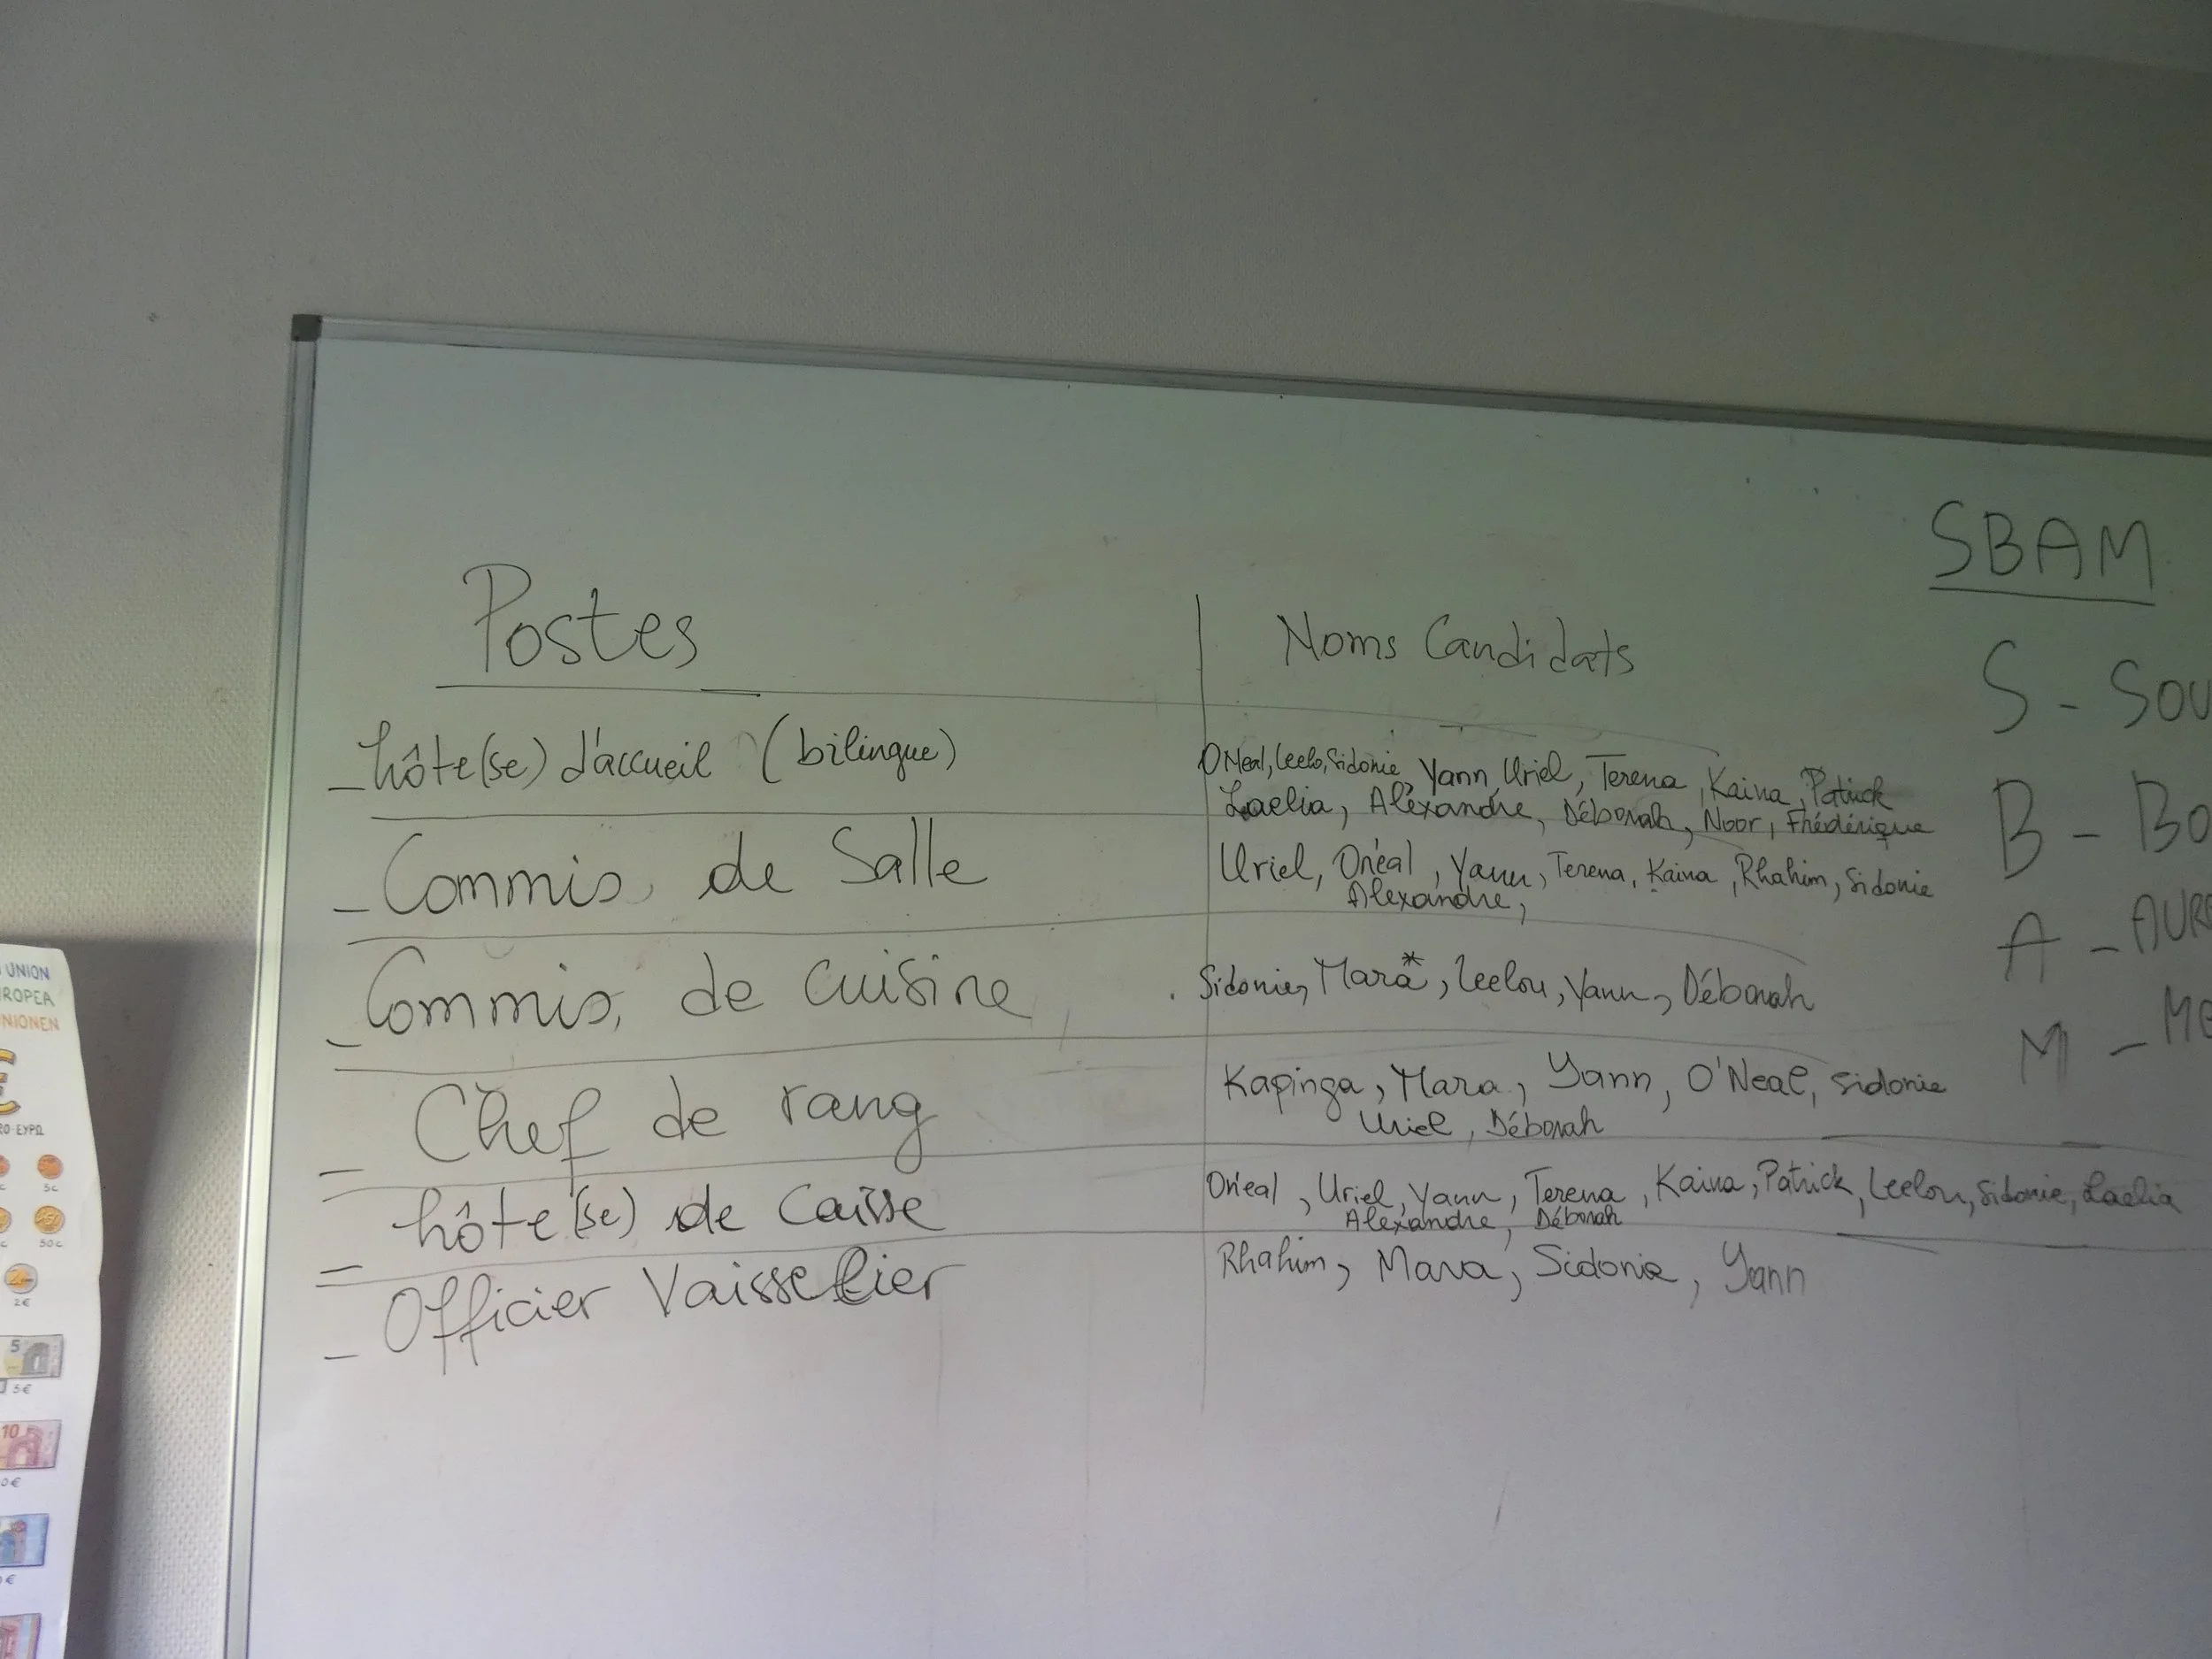 Postes
Noms Candidats
_ hôte(se) d'accueil (bilingue)
O'Neal, Leelo, Sidonie, Yann, Uriel, Terena, Kaina, Patrick
Laelia, Aléxandre, Déborah, Noor, Fhédérique
_ Commis de Salle
Uriel, Onéal, Yann, Terena, Kaina, Rhahim, Sidonie
Alexandre,
_ Commis de Cuisine
Sidonie, Mara*, Leelou, Yann, Déborah
_ Chef de rang
Kapinga, Mara, Yann, O'Neal, Sidonie
Uriel, Déborah
_ hôte(se) de Caisse
On'eal, Uriel, Yann, Terena, Kaina, Patrick, Leelou, Sidonie, Laelia
Alexandre, Déborah
_ Officier Vaisselier
Rhahim, Mara, Sidonie, Yann
SBAM
S - SOU
B - BO
A - AUR
M - ME
UNION
ROPEA
NIONEN
RO·ΕΥΡΩ
5c
50c
2€
5
5€
10
0€
€